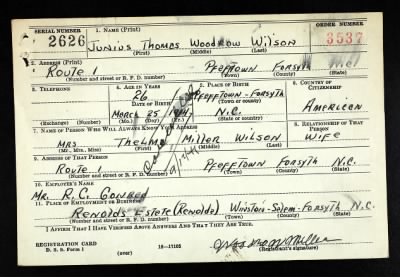 SERIAL NUMBER 1. NAME (Print) ORDER NUMBER
2626 Junius Thomas Woodrow Wilson 3537
(First) (Middle) (Last)
2. ADDRESS (Print)
Route 1 Pfafftown Forsyth N.C.
(Number and street or R. F. D. number) (Town) (County) (State)
3. TELEPHONE 4. AGE IN YEARS 5. PLACE OF BIRTH 6. COUNTRY OF CITIZENSHIP
26 Pfafftown-Forsyth
DATE OF BIRTH (Town or county) American
March 25 N.C.
(Exchange) (Number) (Mo.) (Day) (Yr.) (State or country)
7. NAME OF PERSON WHO WILL ALWAYS KNOW YOUR ADDRESS 8. RELATIONSHIP OF THAT PERSON
Mrs Thelma Miller Wilson Wife
(Mr., Mrs., Miss) (First) (Middle) (Last)
9. ADDRESS OF THAT PERSON
Route 1 Pfafftown Forsyth N.C.
(Number and street or R. F. D. number) (Town) (County) (State)
10. EMPLOYER'S NAME
Mr. R. C.
11. PLACE OF EMPLOYMENT OR BUSINESS
Renolds Estete (Renolda) Winston-Salem-Forsyth N.C.
(Number and street or R. F. D. number) (Town) (County) (State)
I AFFIRM THAT I HAVE VERIFIED ABOVE ANSWERS AND THAT THEY ARE TRUE.
REGISTRATION CARD
D. S. S. Form 1 (over) 16-17105 (Registrant's signature)